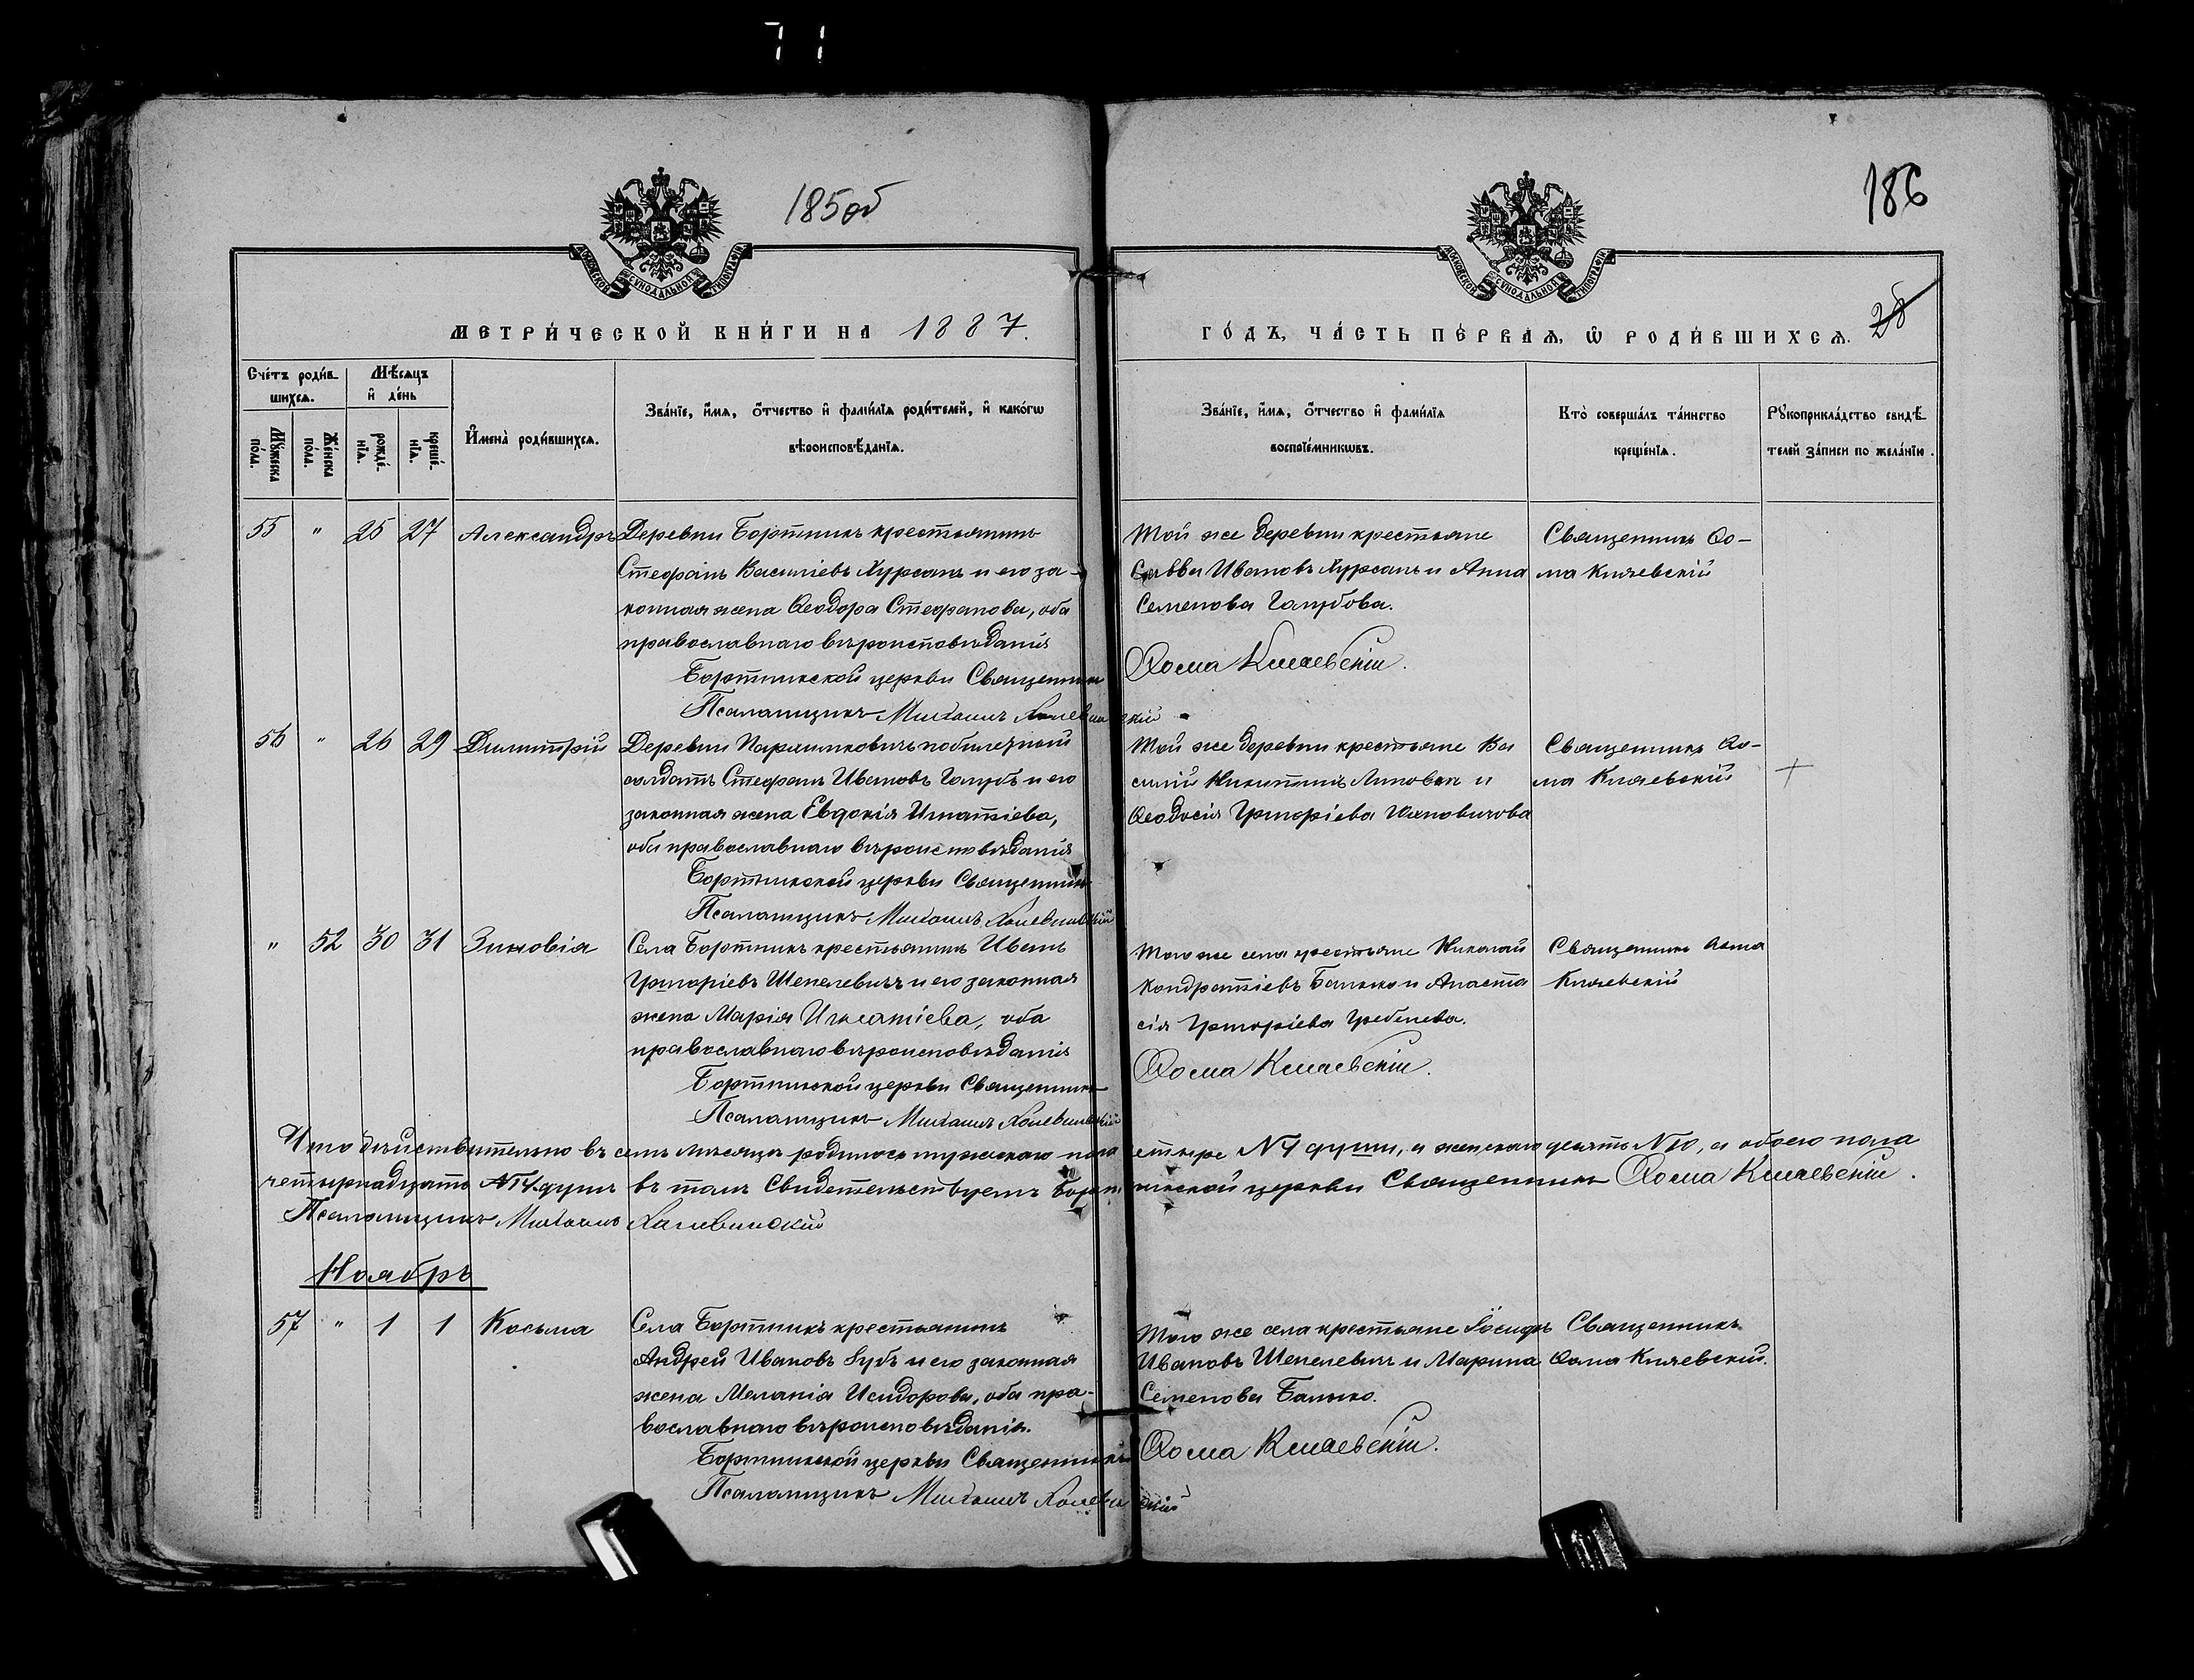 185об
186
МОСКОВСКОЙ СѴНОДАЛЬНОЙ ТИПОГРАФІИ
МОСКОВСКОЙ СѴНОДАЛЬНОЙ ТИПОГРАФІИ
МЕТРИ́ЧЕСКОЙ КНИ́ГИ НА 1887.
ГО́ДЪ, ЧА́СТЬ ПЕ́РВАѦ, Ѡ҆ РОДИ́ВШИХСѦ.
28
Сче́тъ роди́в-
шихсѧ.
Мꙋ́жеска по́ла.
Же́нска по́ла.
Мѣ́сѧцъ
и҆ де́нь
рожде́-
нїѧ.
креще́-
нїѧ.
И҆мена̀ роди́вшихсѧ.
Зва́нїе, и҆́мѧ, ѻ҆́тчество и҆ фамилїѧ роди́телей, и҆ како́гѡ
вѣроисповѣ́данїѧ.
Зва́нїе, и҆́мѧ, ѻ҆́тчество и҆ фами́лїѧ
воспрїе́мникѡвъ.
Кто̀ соверша́лъ та́инство
креще́нїѧ.
Рꙋкоприкла́дство свидѣ́-
телей за́писи по жела́нїю.
55 " 25 27 Александръ Деревни Бортникъ крестьянинъ
Стефанъ Василіевъ Хурсанъ и его за-
конная жена Ѳеодора Стефанова, оба
православнаго вѣроисповѣданія
Бортникской церкви Священникъ
Псаломщикъ Михаилъ
Той же деревни крестьяне
Савва Ивановъ Хурсанъ и Анна
Семенова Голубова.
Ѳома Княжевскій.
Священникъ Ѳо-
ма Княжевскій
56 " 26 29 Димитрій Деревни побилетный
солдатъ Стефанъ Ивановъ Голубъ и его
законная жена Евдокія Игнатіева,
оба православнаго вѣроисповѣданія
Бортникской церкви Священникъ
Псаломщикъ Михаилъ
Той же деревни крестьяне Ва
силій Никитинъ и
Ѳеодосія Григоріева
Священникъ Ѳо-
ма Княжевскій
" 52 30 31 Зиновія Села Бортникъ крестьянинъ Иванъ
Григоріевъ Шепелевичъ и его законная
жена Марія Игнатіева, оба
православнаго вѣроисповѣданія
Бортникской церкви Священникъ
Псаломщикъ Михаилъ
Того же села крестьяне Николай
Кондратіевъ Банько и Анаста
сія Григоріева Гребенева.
Ѳома Княжевскій.
Священникъ Ѳома
Княжевскій
Что дѣйствительно въ семъ мѣсяцѣ родилось мужескаго пола четыре №4 души, а женскаго десять №10, а обоего пола
четырнадцать №14 душъ въ томъ Свидетельствуетъ Бортникской церкви Священникъ Ѳома Княжевскій.
Псаломщикъ Михаилъ
Ноябрь
57 " 1 1 Косьма Села Бортникъ крестьянинъ
Андрей Ивановъ Зубъ и его законная
жена Меланія Исидорова, оба пра-
вославнаго вѣроисповѣданія.
Бортникской церкви Священникъ
Псаломщикъ Михаилъ
Того же села крестьяне Іосифъ
Ивановъ Шепелевичъ и Марина
Семенова Банько.
Ѳома Княжевскій.
Священникъ
Ѳома Княжевскій.